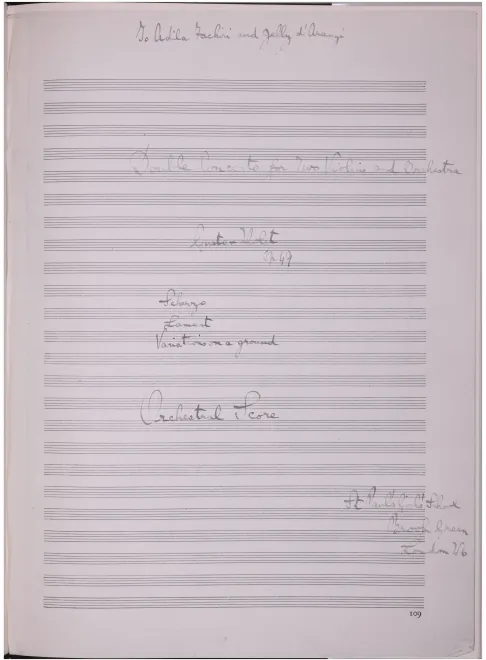 To Adila Fachiri and Jelly d'Aranyi
Double Concerto for Two Violins and Orchestra
Gustav Holst
Op 49
Scherzo
Lament
Variations on a ground
Orchestral Score
St Paul's Girls' School
Brook Green
London W6
109